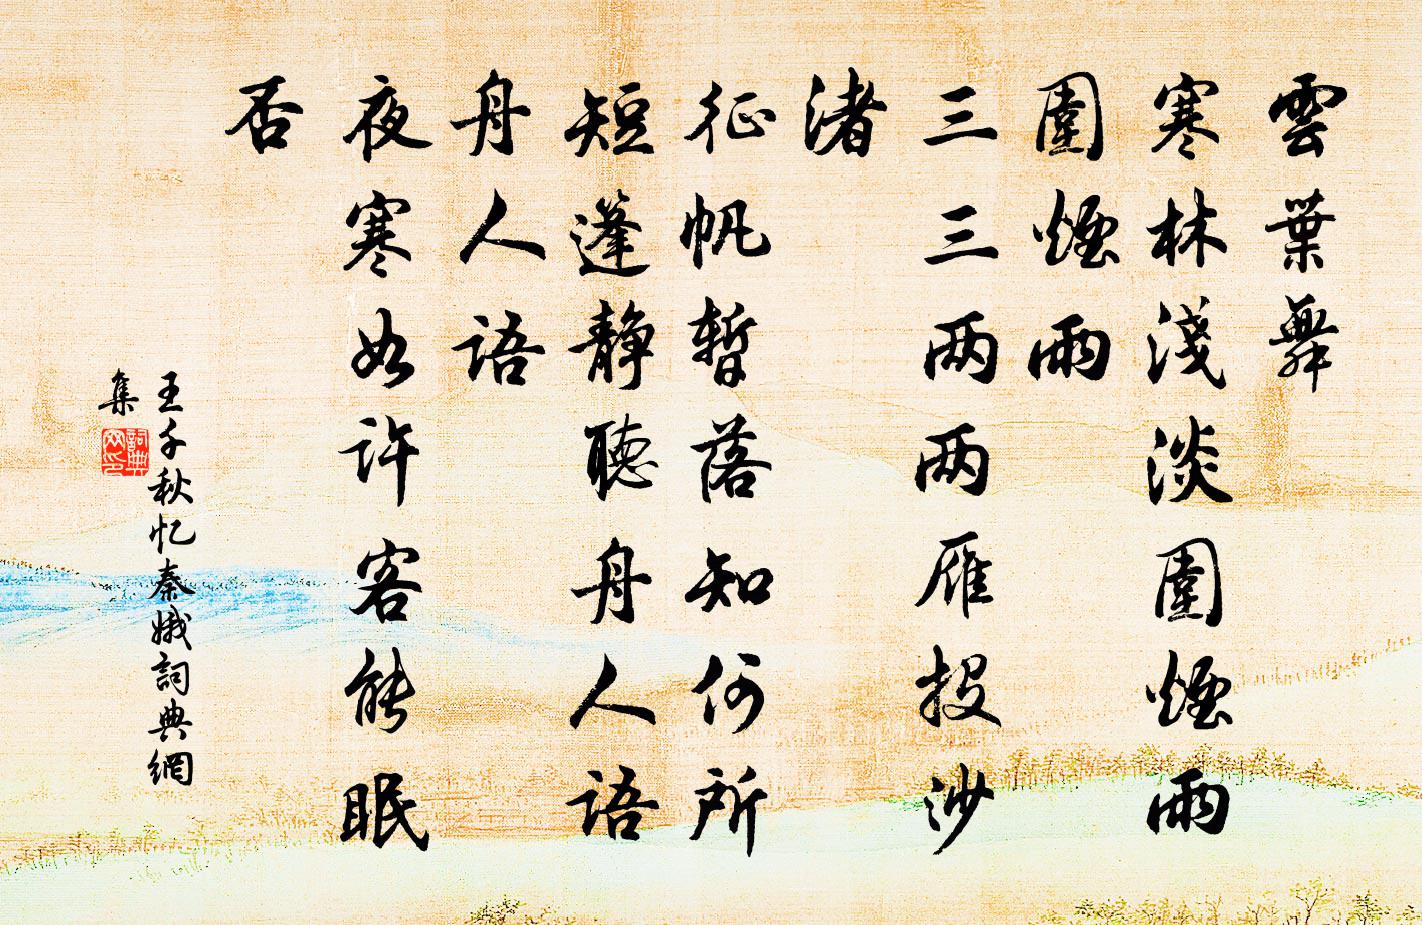 雲葉舞
寒林淺淡圍煙雨
圍煙雨
三三两两雁投沙
渚
征帆暫落知何所
短篷静聽舟人语
舟人语
夜寒如许客能眠
否
王千秋忆秦娥詞典網
集
詞典网印